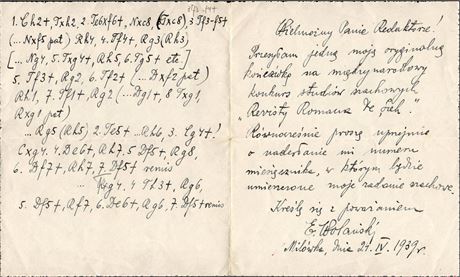 1. Ch2+, Txh2, 2. Te6xf6+, Nxc8, (Txc8) 3. Tf3-f5+
(... Nxf5 pat) Rh4, 4. Tf4+, Rg3 (Rh3)
[... Ng4, 5. Txg4+, Rh5, 6. Tg5+ etc.]
5. Tf3+, Rg2, 6. Tf2+ (... Dxf2 pat)
Rh1, 7. Tf1+, Rg2 (... Dg1+, 8. Txg1,
Rxg1 pat)
... Rg5 (Rh5) 2. Te5+ ... Rh6, 3. Cg4+!
Cxg4, 4. De6+, Rh7, 5. Df5+, Rg8,
6. Df7+, Rh7, 7. Df5+ remis
... Txg4, 4. Th3+, Rg6,
5. Df5+, Rf7, 6. De6+, Rg6, 7. Df5+ remis
Wielmożny Panie Redaktorze!
Przesyłam jedną moją oryginalną
końcówkę na międzynarodowy
konkurs studiów szachowych
„Revisty Romana de Şah."
Równocześnie proszę uprzejmie
o nadesłanie mi numeru
miesięcznika, w którym będzie
umieszczone moje zadanie szachowe.
Kreślę się z poważaniem
E. Wolański
Milówka, dnia 21. IV. 1939 r.